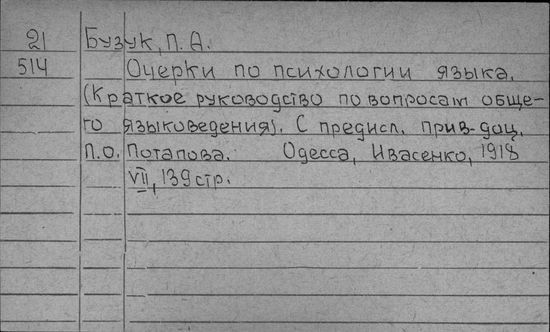 21 Бузук, П. А.
514 Очерки по психологии языка.
(Краткое руководство по вопросам обще-
го языковедения). С предисл. прив-доц.
П.О. Потапова. Одесса, Ивасенко, 1918
VII, 139 стр.